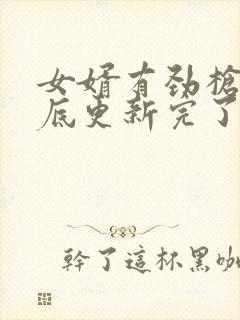 女婿有劲槍
底更新完了
幹了這杯黑咖